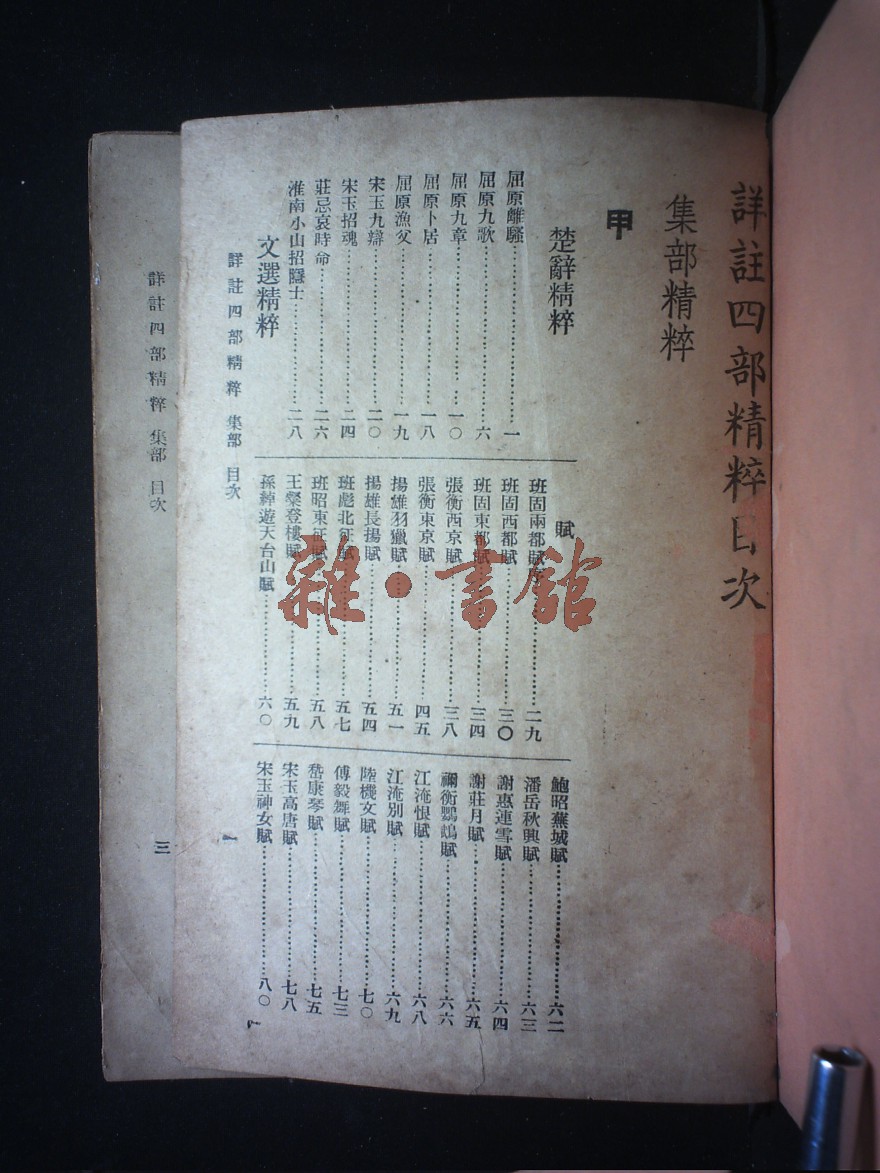 詳註四部精粹目次
集部精粹
甲
楚辭精粹
屈原離騷一
屈原九歌六
屈原九章一〇
屈原卜居一八
屈原漁父一九
宋玉九辯二〇
宋玉招魂二四
莊忌哀時命二六
淮南小山招隱士二八
文選精粹
賦
班固兩都賦序二九
班固西都賦三〇
班固東都賦三四
張衡西京賦三八
張衡東京賦四五
揚雄羽獵賦五一
揚雄長揚賦五四
班彪北征賦五七
班昭東征賦五八
王粲登樓賦五九
孫綽遊天台山賦六〇
鮑昭蕪城賦六二
潘岳秋興賦六三
謝惠連雪賦六四
謝莊月賦六五
禰衡鸚鵡賦六六
江淹恨賦六八
江淹別賦六九
陸機文賦七〇
傅毅舞賦七三
嵇康琴賦七五
宋玉高唐賦七八
宋玉神女賦八〇
詳註四部精粹 集部 目次
一
詳註四部精粹 集部 目次
三
雜·書館